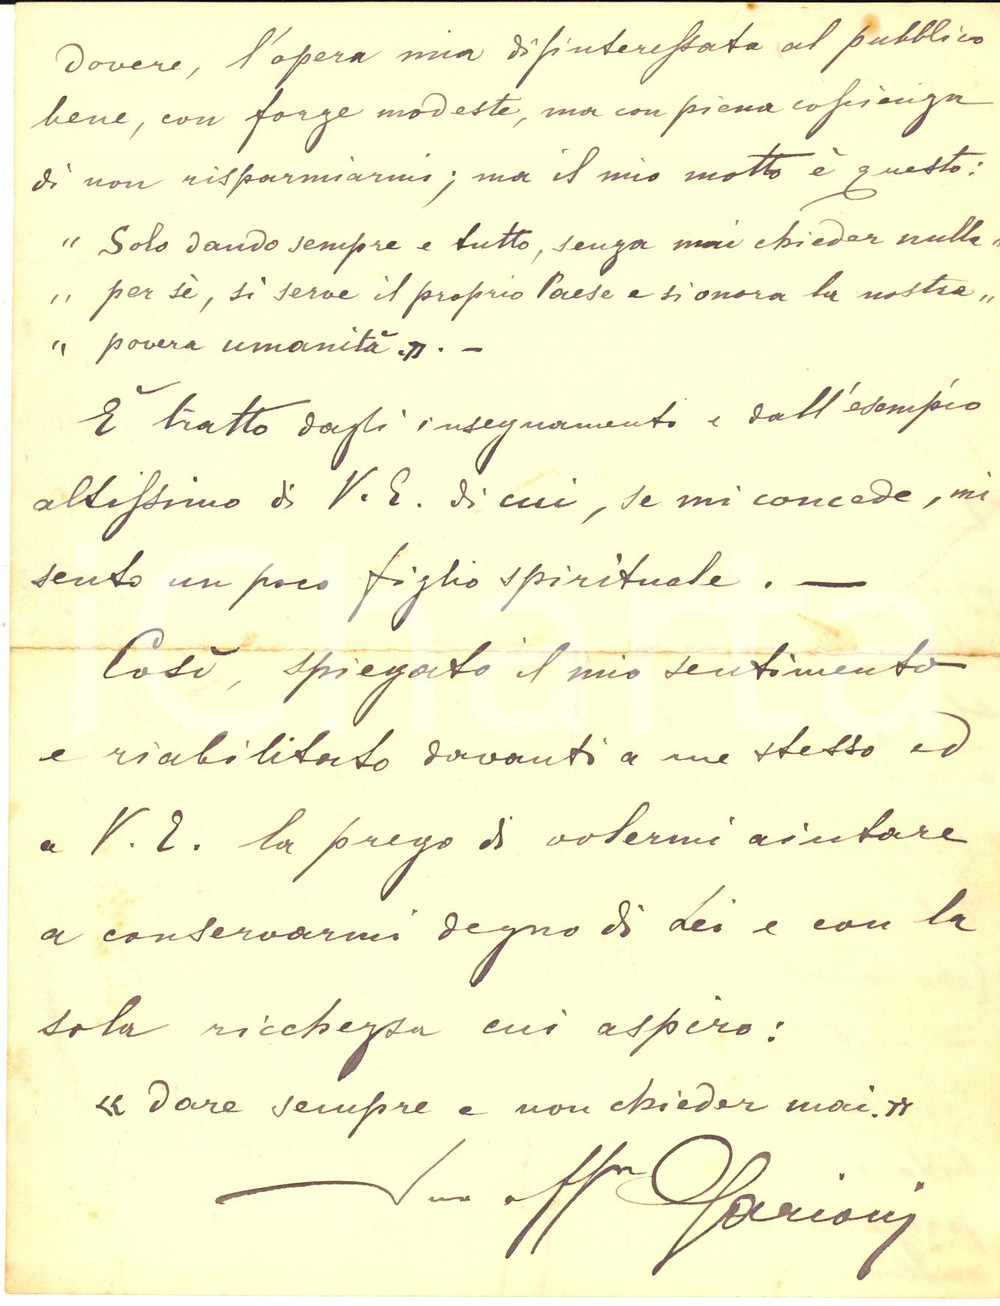 dovere, l'opera mia disinteressata al pubblico
bene, con forze modeste, ma con piena coscienza
di non risparmiarmi; ma il mio motto è questo:
" Solo dando sempre e tutto, senza mai chieder nulla "
" per sè, si serve il proprio Paese e si onora la nostra "
" povera umanità ». —
È tratto dagli insegnamenti e dall'esempio
altissimo di V. E. di cui, se mi concede, mi
sento un poco figlio spirituale. —
Così, spiegato il mio sentimento
e riabilitato davanti a me stesso ed
a V. E. la prego di volermi aiutare
a conservarmi degno di Lei e con la
sola ricchezza cui aspiro:
« dare sempre e non chieder mai. »
Suo aff.mo Garioni
iCharta